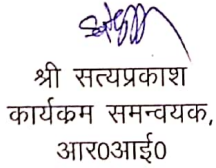 श्री सत्यप्रकाश
कार्यकम समन्वयक,
आर0आई0